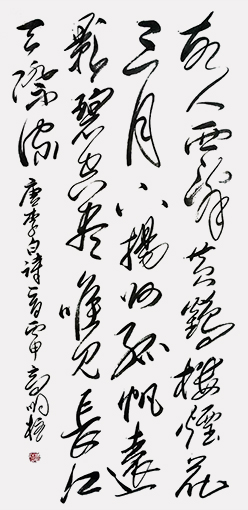 故人西辭黄鶴樓煙花
三月下揚州孤帆遠
影碧空盡唯見長江
天際流 唐李白詩一首丙申